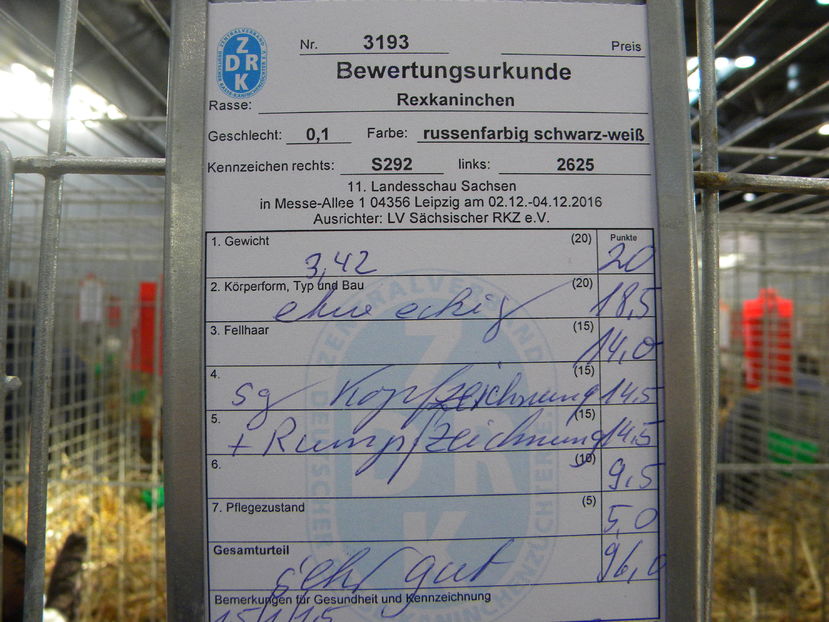 ZDRK
Nr. 3193 Preis
Bewertungsurkunde
Rasse: Rexkaninchen
Geschlecht: 0,1 Farbe: russenfarbig schwarz-weiß
Kennzeichen rechts: S292 links: 2625
11. Landesschau Sachsen
in Messe-Allee 1 04356 Leipzig am 02.12.-04.12.2016
Ausrichter: LV Sächsischer RKZ e.V.
1. Gewicht (20) Punkte
3,42 20
2. Körperform, Typ und Bau (20)
eckig 18,5
3. Fellhaar (15)
14,0
4. (15)
sg Kopfzeichnung 14,5
5. (15)
+ Rumpfzeichnung 14,5
6. (10)
9,5
7. Pflegezustand (5)
5,0
Gesamturteil
sehr gut 96,0
Bemerkungen für Gesundheit und Kennzeichnung